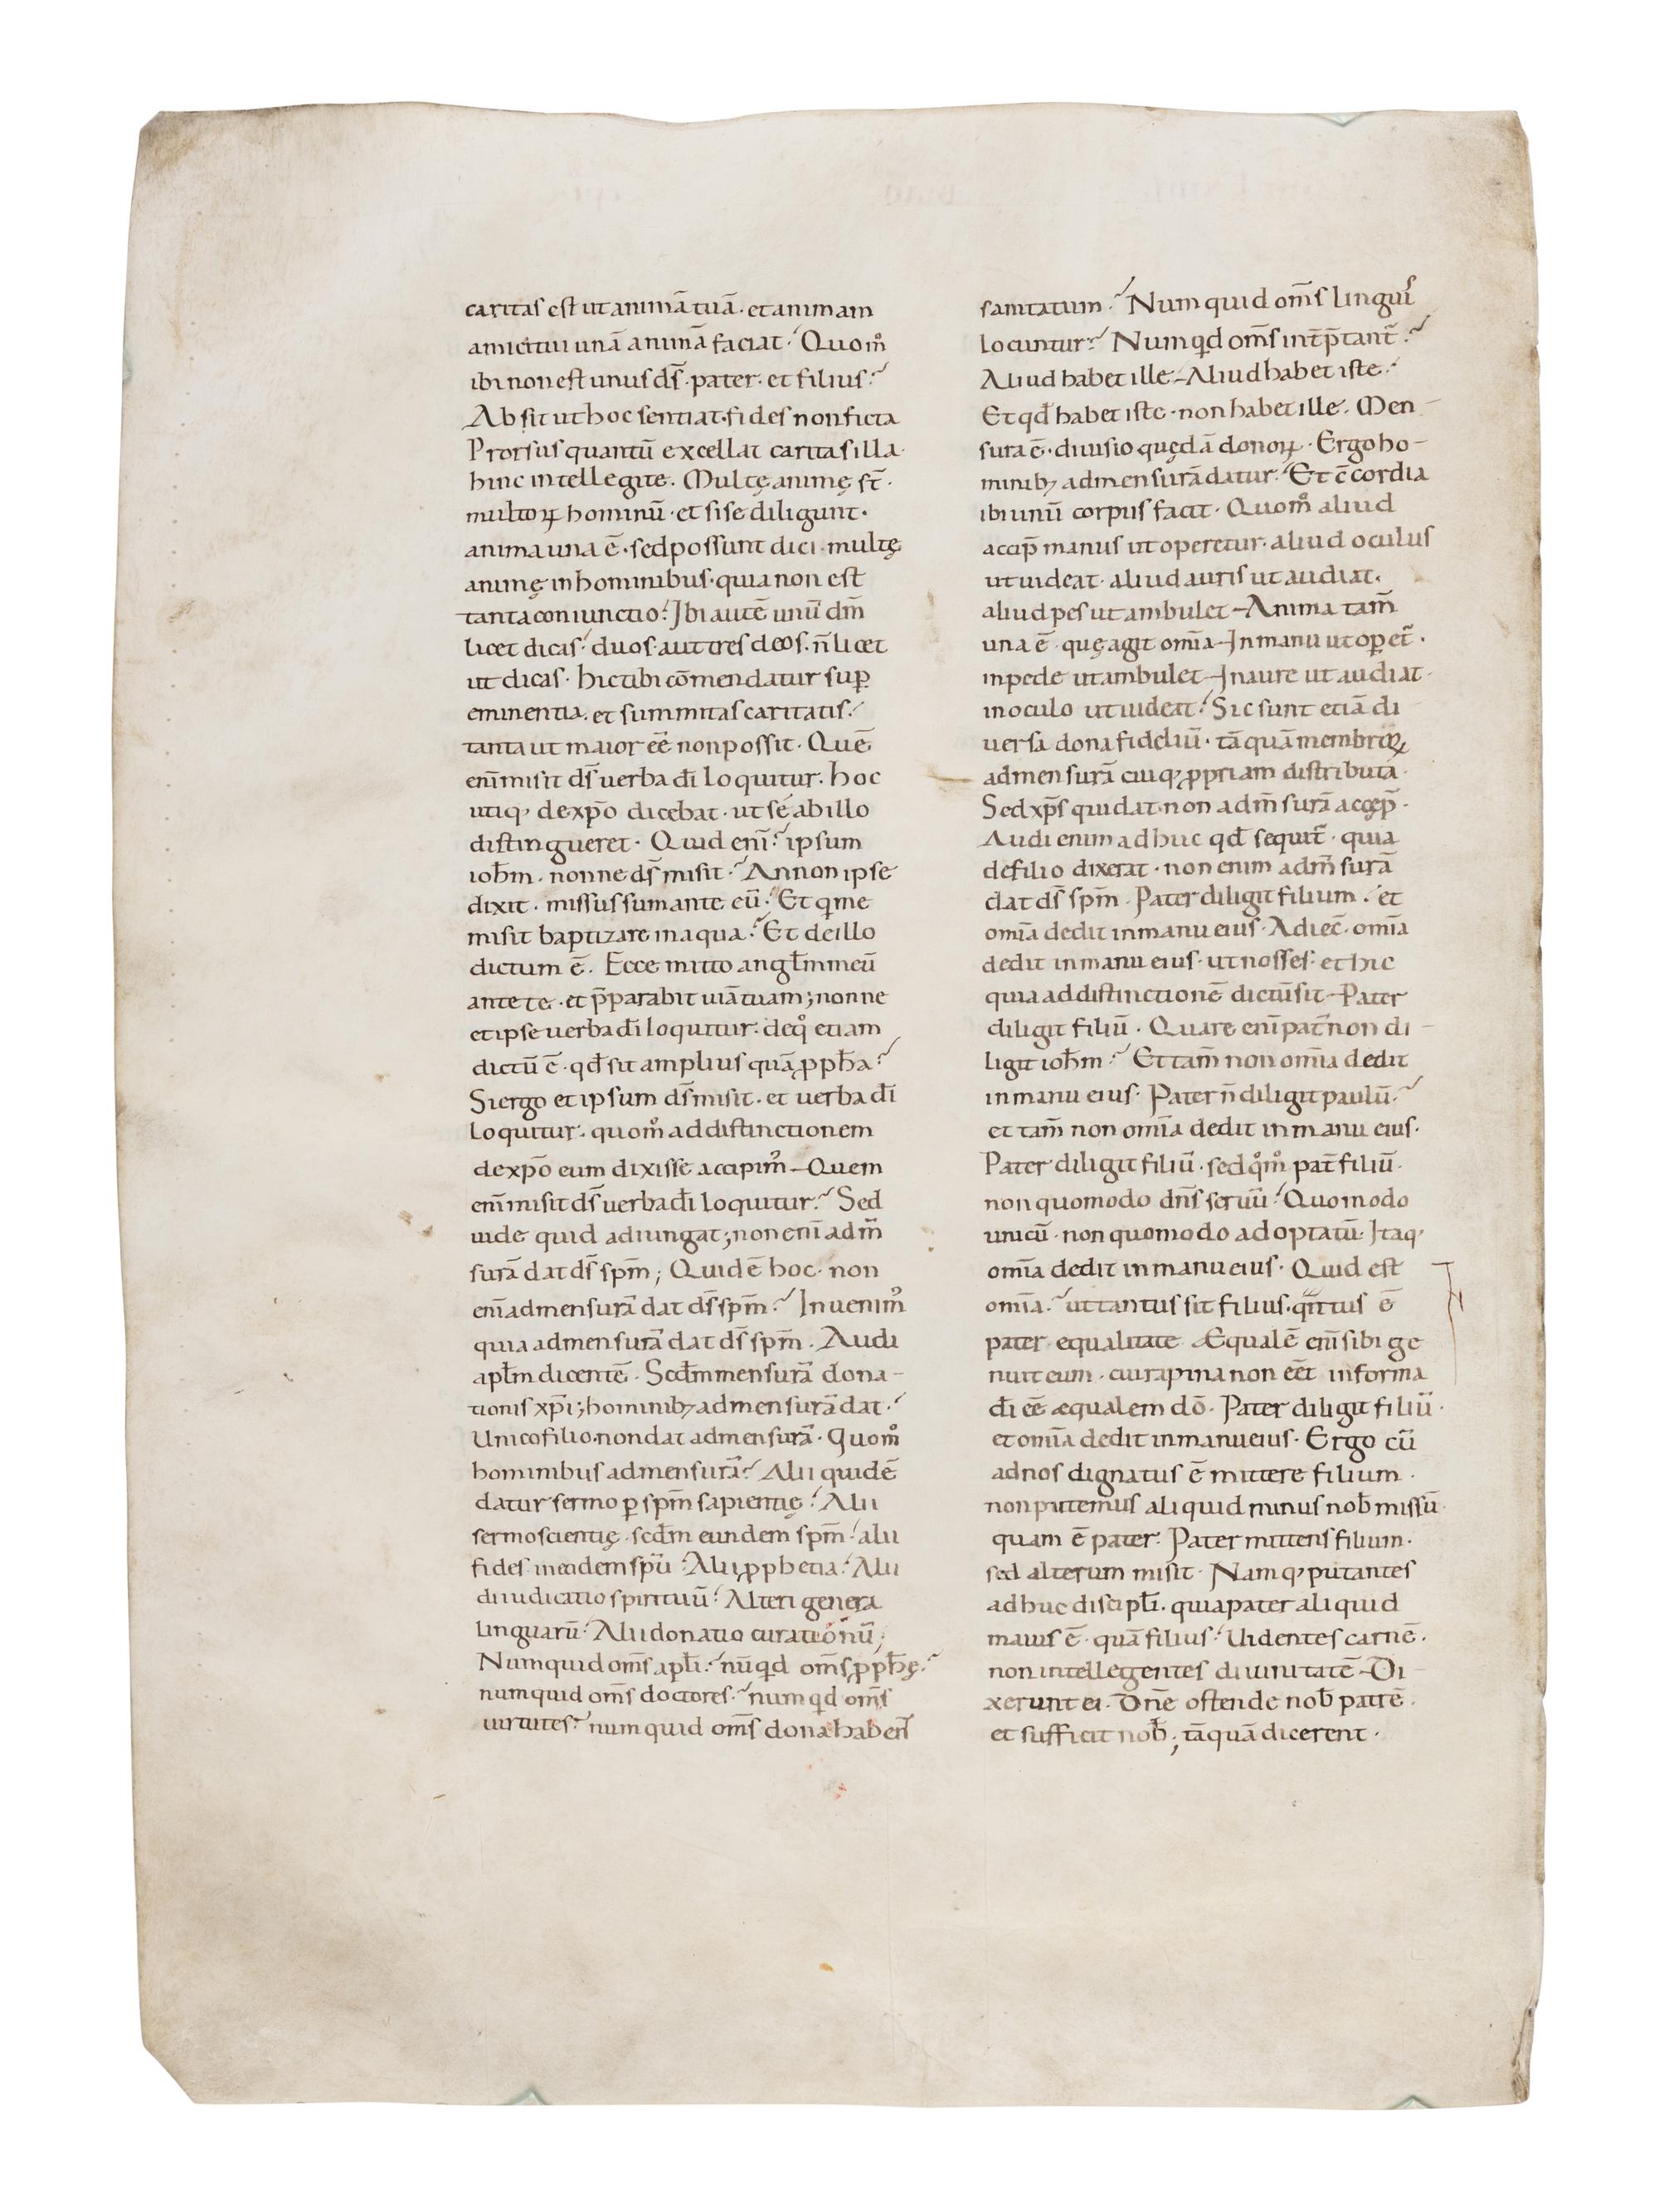 caritas est ut animā tuā· et animam
amici tui unā animā faciat· Quom̊
ibi non est unus ds̄· pater· et filius·
Absit ut hoc sentiat· fides non ficta
Prorsus quantū excellat caritas illa·
hinc intellegite. Multę animę st̄·
multoꝝ hominū· et si se diligunt·
anima una ē· sed possunt dici· multę
animę in hominibus· quia non est
tanta coniunctio· Ibi autē unū dm̄
licet dicas· duos· aut tres deos· n̄ licet
ut dicas· hic tibi cōmendatur suꝑ
eminentia· et summitas caritatis·
tanta ut maior eē non possit· Quē
enī misit ds̄ uerba dī loquitur· hoc
utiq· de xp̄o dicebat· ut se ab illo
distingueret· Quid enī· ipsum
ioh̄m· nonne ds̄ misit· An non ipse
dixit· missus sum ante eū· Et q me
misit baptizare in aqua· Et de illo
dictum ē· Ecce mitto angl̄m meū
ante te· et p̄parabit uiā tuam; nonne
et ipse uerba dī loquitur· de q̊ etiam
dictū ē· qd̄ sit amplius quā ꝓpħa·
Si ergo et ipsum ds̄ misit· et uerba dī
loquitur· quom̊ ad distinctionem
de xp̄o eum dixisse accipim᷒– Quem
enī misit ds̄ uerba dī loquitur· Sed
uide quid adiungat; non enī ad m̄
surā dat ds̄ spm̄; Quid ē hoc· non
enī ad mensurā dat ds̄ spm̄· Inuenim᷒
quia ad mensurā dat ds̄ spm̄· Audi
apl̄m dicentē· Scd̄m mensurā dona-
tionis xp̄i; hominibꝫ ad mensurā dat·
Unico filio· non dat ad mensurā· Quom̊
hominibus ad mensurā· Alii quidē
datur sermo ꝑ spm̄ sapientię· Alii
sermo scientię· scd̄m eundem spm̄· alii
fides in eodem spū· Alii ꝓphetia· Alii
diiudicatio spirituū· Alteri genera
linguarū· Alii donatio curationū;
Numquid oms̄ apl̄i· nūqd oms̄ ꝓpħę·
numquid oms̄ doctores· numqd oms̄
uirtutes· numquid oms̄ dona habent
sanitatum· Numquid oms̄ linguis
locuntur· Numqd oms̄ int̄p̄tant̄·
Aliud habet ille– Aliud habet iste·
Et qd̄ habet iste· non habet ille· Men-
sura ē· diuisio quędā donoꝝ· Ergo ho-
minibꝫ ad mensurā datur· Et c̄cordia
ibi unū corpus facit· Quom̊ aliud
accip̄ manus ut operetur· aliud oculus
ut uideat· aliud auris ut audiat·
aliud pes ut ambulet– Anima tam̄
una ē· quę agit omīa– In manu ut oꝑet̄·
in pede ut ambulet– In aure ut audiat·
in oculo ut uideat· Sic sunt etiā di
uersa dona fideliū· tāquā membroꝝ
ad mensurā cuiq· ꝓpriam distributa·
Sed xp̄s qui dat· non ad m̄surā accęp̄·
Audi enim adhuc qd̄ sequit̄· quia
de filio dixerat· non enim ad m̄surā
dat ds̄ spm̄· Pater diligit filium· et
omīa dedit in manu eius· Adiec̄· omīa
dedit in manu eius· ut nosses· et hic
quia ad distinctionē dictū sit– Pater
diligit filiū· Quare enī pat̄ non di-
ligit ioh̄m· Et tam̄ non omīa dedit
in manu eius· Pater n̄ diligit paulū·
et tam̄ non omīa dedit in manu eius·
Pater diligit filiū· sed q̊m̊ pat̄ filiū·
non quomodo dns̄ seruū· Quomodo
unicū· non quomodo adoptatū· Itaq·
omīa dedit in manu eius· Quid est
omīa· ut tantus sit filius· qntus ē
pater· equalitate· Æqualē enī sibi ge
nuit eum· cui rapina non eēt in forma
dī eē æqualem dō· Pater diligit filiū·
et omīa dedit in manu eius· Ergo cū
ad nos dignatus ē mittere filium·
non putemus aliquid minus nob̄ missū·
quam ē pater· Pater mittens filium·
sed alterum misit· Namq· putantes
adhuc discipl̄i· quia pater aliquid
maius ē· quā filius· Uidentes carnē·
non intellegentes diuinitatē– Di-
xerunt ei· Dn̄e ostende nob̄ patrē·
et sufficit nob̄; tāquā dicerent·